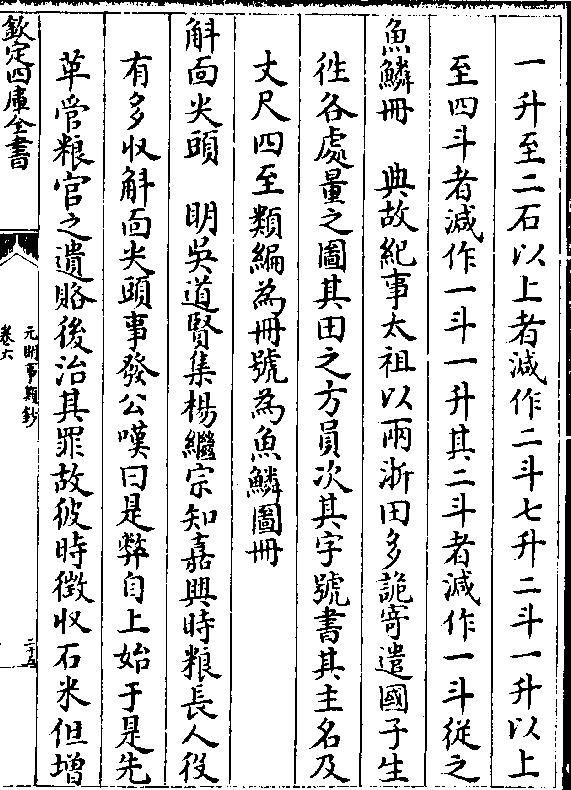 一升至二石以上者減作二斗七升二斗一升以上
至四斗者減作一斗一升其二斗者減作一斗從之
魚鱗冊　典故紀事太祖以兩浙田多詭寄遣國子生
徃各處量之圖其田之方員次其字號書其主名及
丈尺四至類編為冊號為魚鱗圖冊
斛面尖頭　明吳道賢集楊繼宗知嘉興時粮長人役
有多收斛面尖頭事發公嘆曰是弊自上始于是先
革管粮官之遺賂後治其罪故彼時徴收石米但增
欽定四庫全書
元明事類鈔
卷六
二十五